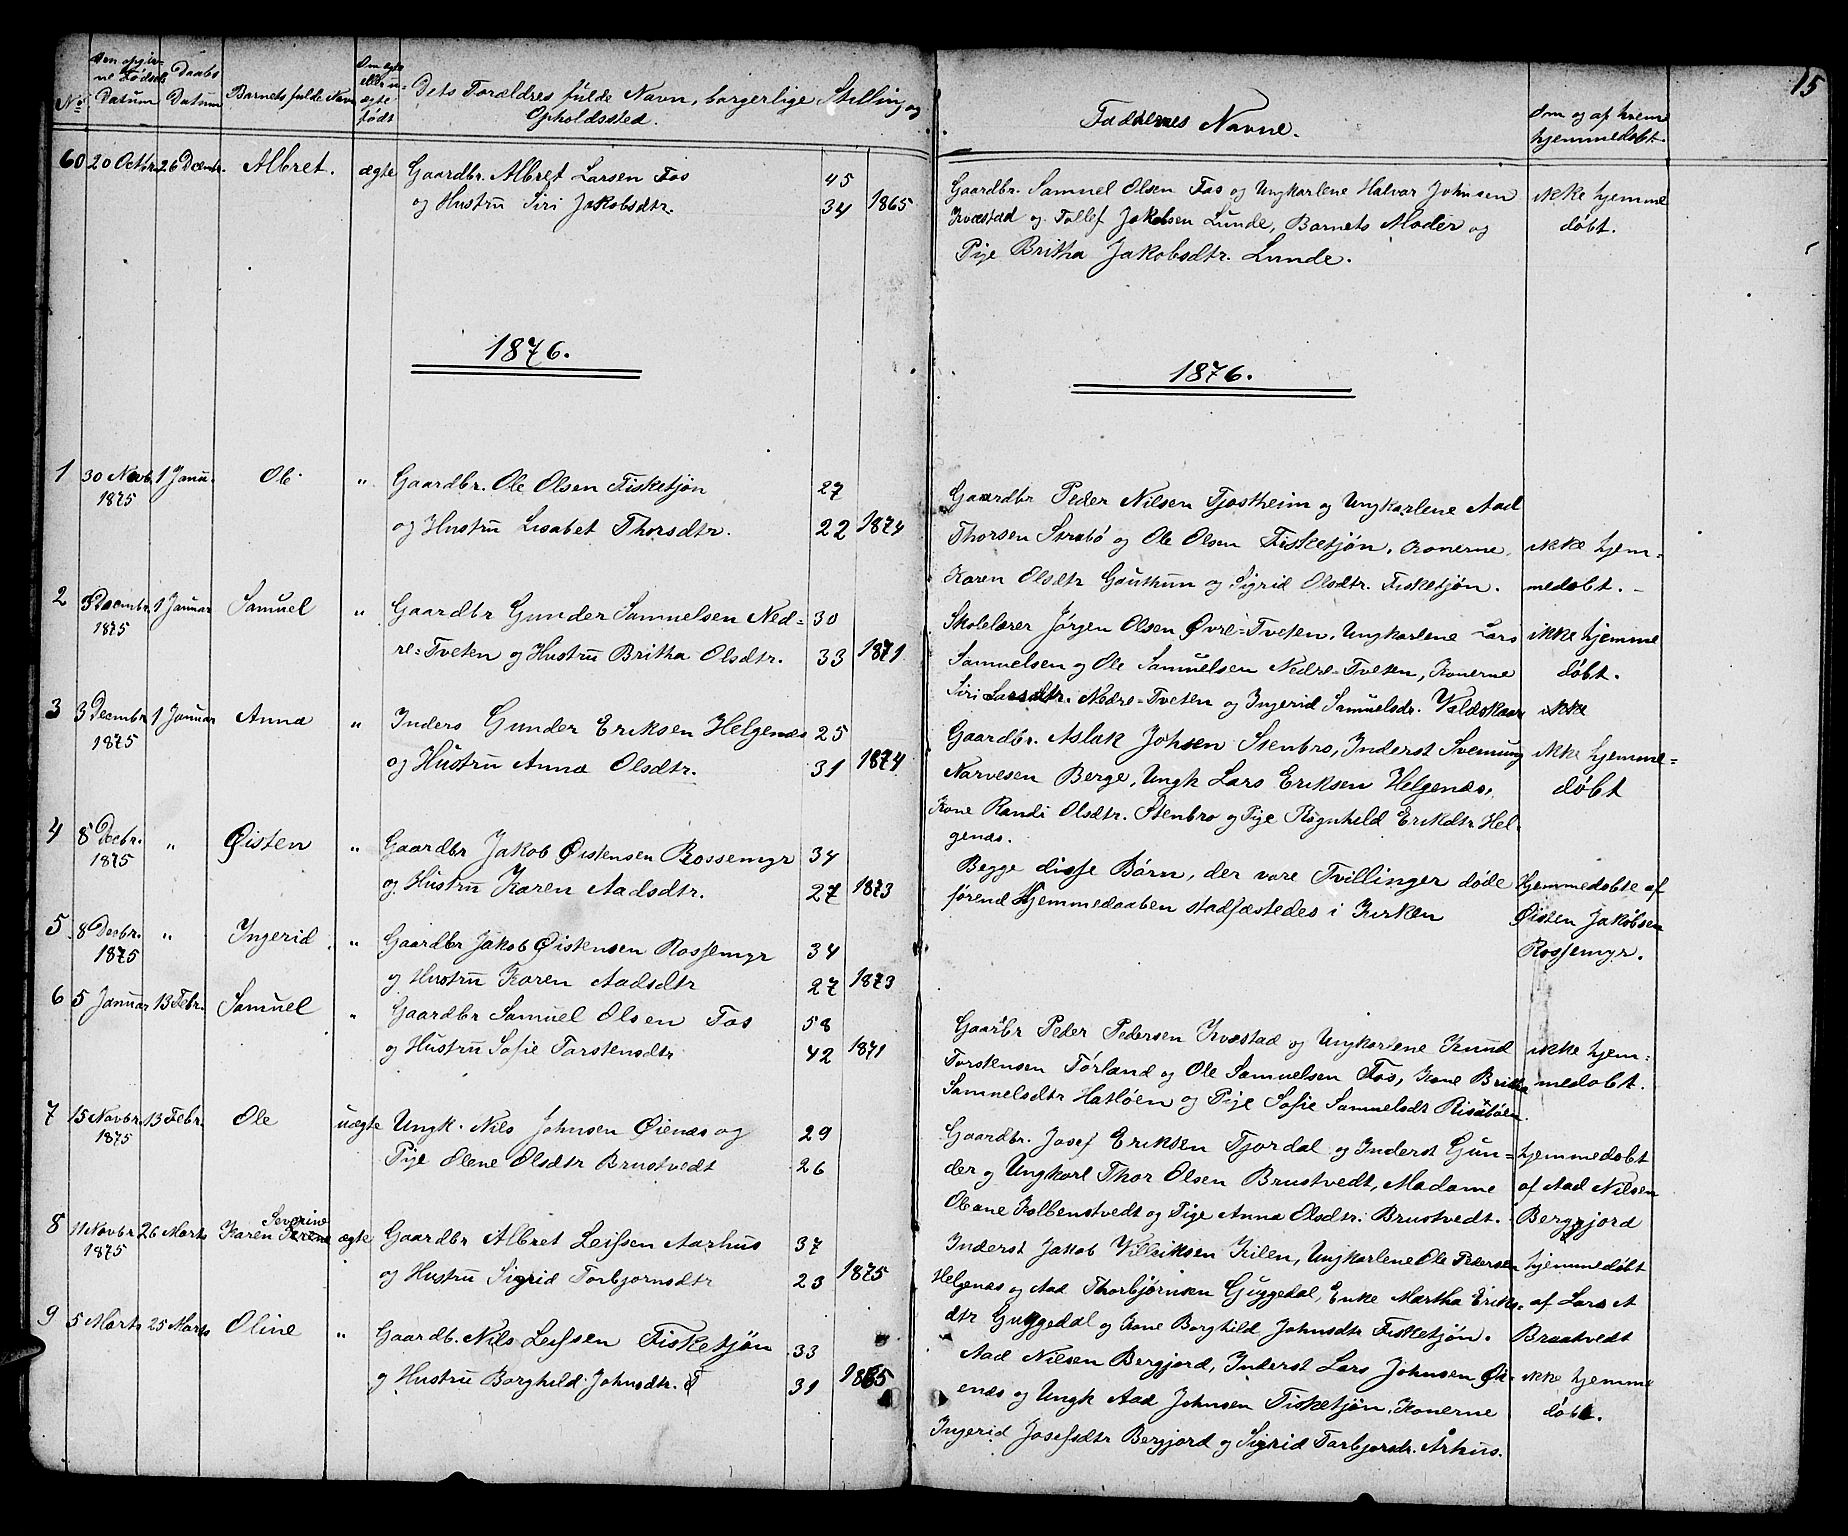 15
No
Den opgivne Fødsels Datum
Daabs Datum
Barnets fulde Navn
Om ægte eller uægte født
Dets Forældres fulde Navn, borgerlige Stilling og Opholdssted.
Faddernes Navne.
Om og af hvem hjemmedøbt.
60 20 Octbr. 26 Decmbr. Albret. ægte Gaardbr. Albret Larsen Fos 45
og Hustru Siri Jakobsdtr. 34 1865
Gaardbr. Samuel Olsen Fos og Ungkarlene Halvor Johnsen
Kvæstad og Tollef Jakobsen Lunde, Barnets Moder og
Pige Britha Jakobsdtr. Lunde.
ikke hjemme
døbt.
1876.
1876.
1 30 Novb. 1 Janu. Ole " Gaardbr. Ole Olsen Fisketjøn 27
1875 og Hustru Lisabet Thorsdtr. 22 1874
Gaardbr Peder Nilsen Tjostheim og Ungkarlene Aad
Thorsen Strabø og Ole Olsen Fisketjøn, Konerne
Karen Olsdtr Gauthun og Sigrid Olsdtr. Fisketjøn.
ikke hjem-
medøbt. -
2 3 Decmbr. 1 Januar Samuel " Gaardbr Gunder Samuelsen Ned= 30
1875 re=Tveten og Hustru Britha Olsdtr. 33 1871
Skolelærer Jørgen Olsen Øvre=Tveten, Ungkarlene Lars
Samuelsen og Ole Samuelsen Nedre=Tveten, Konerne
Siri Larsdtr. Nedre=Tveten og Ingerid Samuelsdr. Valdskaar
ikke hjemme
døbt.
ikke
3 3 Decmbr. 1 Januar Anna " Inders Gunder Eriksen Helgenæs 25
1875 og Hustru Anna Olsdtr. 31 1874
Gaardbr. Aslak Johsen Stenbro, Inderst Svenung
Narvesen Berge, Ungk Lars Eriksen Helgenæs,
Kone Randi Olsdtr. Stenbro og Pige Rognhild Erikdtr. Hel-
genæs.
ikke hjemme=
døbt
4 8 Decbr. " Øisten " Gaardbr Jakob Øistensen Rossemyr 34
1875 og Hustru Karen Aadsdtr. 27 1873
Begge disse Børn, der vare Tvillinger døde
førend Hjemmedaaben stadfæstedes i Kirken
Hjemmedøbte af
Øisten Jakobsen
Rossemyr.
5 8 Decbr. " Ingerid " Gaardbr Jakob Øistensen Rossemyr 34
1875 og Hustru Karen Aadsdtr 27 1873
6 5 Januar 13 Febr. Samuel " Gaardbr Samuel Olsen Fos 58
og Hustru Sofie Torstensdtr 42 1871
Gaarbr Peder Pedersen Kvæstad og Ungkarlene Knud
Torstensen Førland og Ole Samuelsen Fos, Kone Britha
Samuelsdtr Hatløen og Pige Sofie Samuelsdt Risøtøen
ikke hjem=
medøbt.
7 15 Novbr. 13 Febr. Ole uægte Ungk. Nils Johnsen Øienæs og 29
1875 Pige Olene Olsdtr Brustvedt 26
Gaardbr. Josef Eriksen Fjordal og Inderst Gun=
der og Ungkarl Thor Olsen Brustvedt, Madame
Obane Kolbenstvedt og Pige Anna Olsdtr. Brustvedt.
hjemmedøbt
af Aad Nilsen
Bergjord
8 11 Novbr 26 Marts Karen Severine ægte Gaardbr Albret Leifsen Aarhus 37
1875 og Hustru Sigrid Torbjornsdtr 23 1875
Inderst Jakob Villiksen Kilen, Ungkarlene Ole Pedersen
Helgenæs og Aad Thorbjørnsen Guggedal, Enke Martha Eriks=
dtr Guggedal og Kone Borghild Johnsdtr Fisketjøn.
hjemmedøbt
af Lars A
Braatvedt
9 5 Marts 25 Marts Oline " Gaardb. Nils Leifsen Fisketjøn 33
og Hustru Borghild Johnsdtr. 31 1865
Aad Nilsen Bergjord, Inderst Lars Johnsen Øi-
enæs og Ungk Aad Johnsen Fisketjøn, Konerne
Ingerid Josefsdtr Bergjord og Sigrid Torbjorsdr. Århus.
ikke hjemme
døbt.